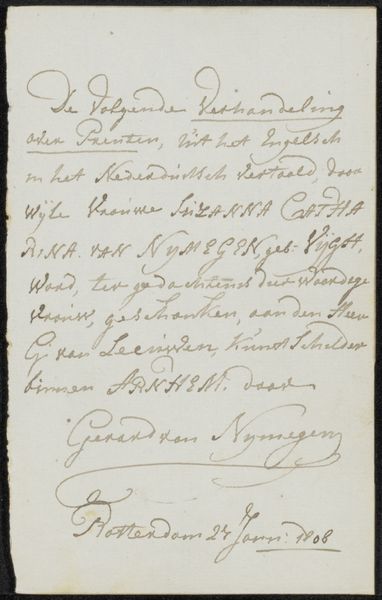 De Volgende Verhandeling
over Prenten, uit het Engelsch
in het Nederduitsch vertaald, door
wijle Vrouwe SUZANNA CATHA
RINA VAN NYMEGEN, geb. VIJGH,
Word, ter gedachtenis dier waardige
Vrouw, geschonken, aan den Heer
G. van Leeuwen, Kunst Schilder
binnen ARNHEM. door
Gerard van Nymegen
Rotterdam 2 Janu: 1808